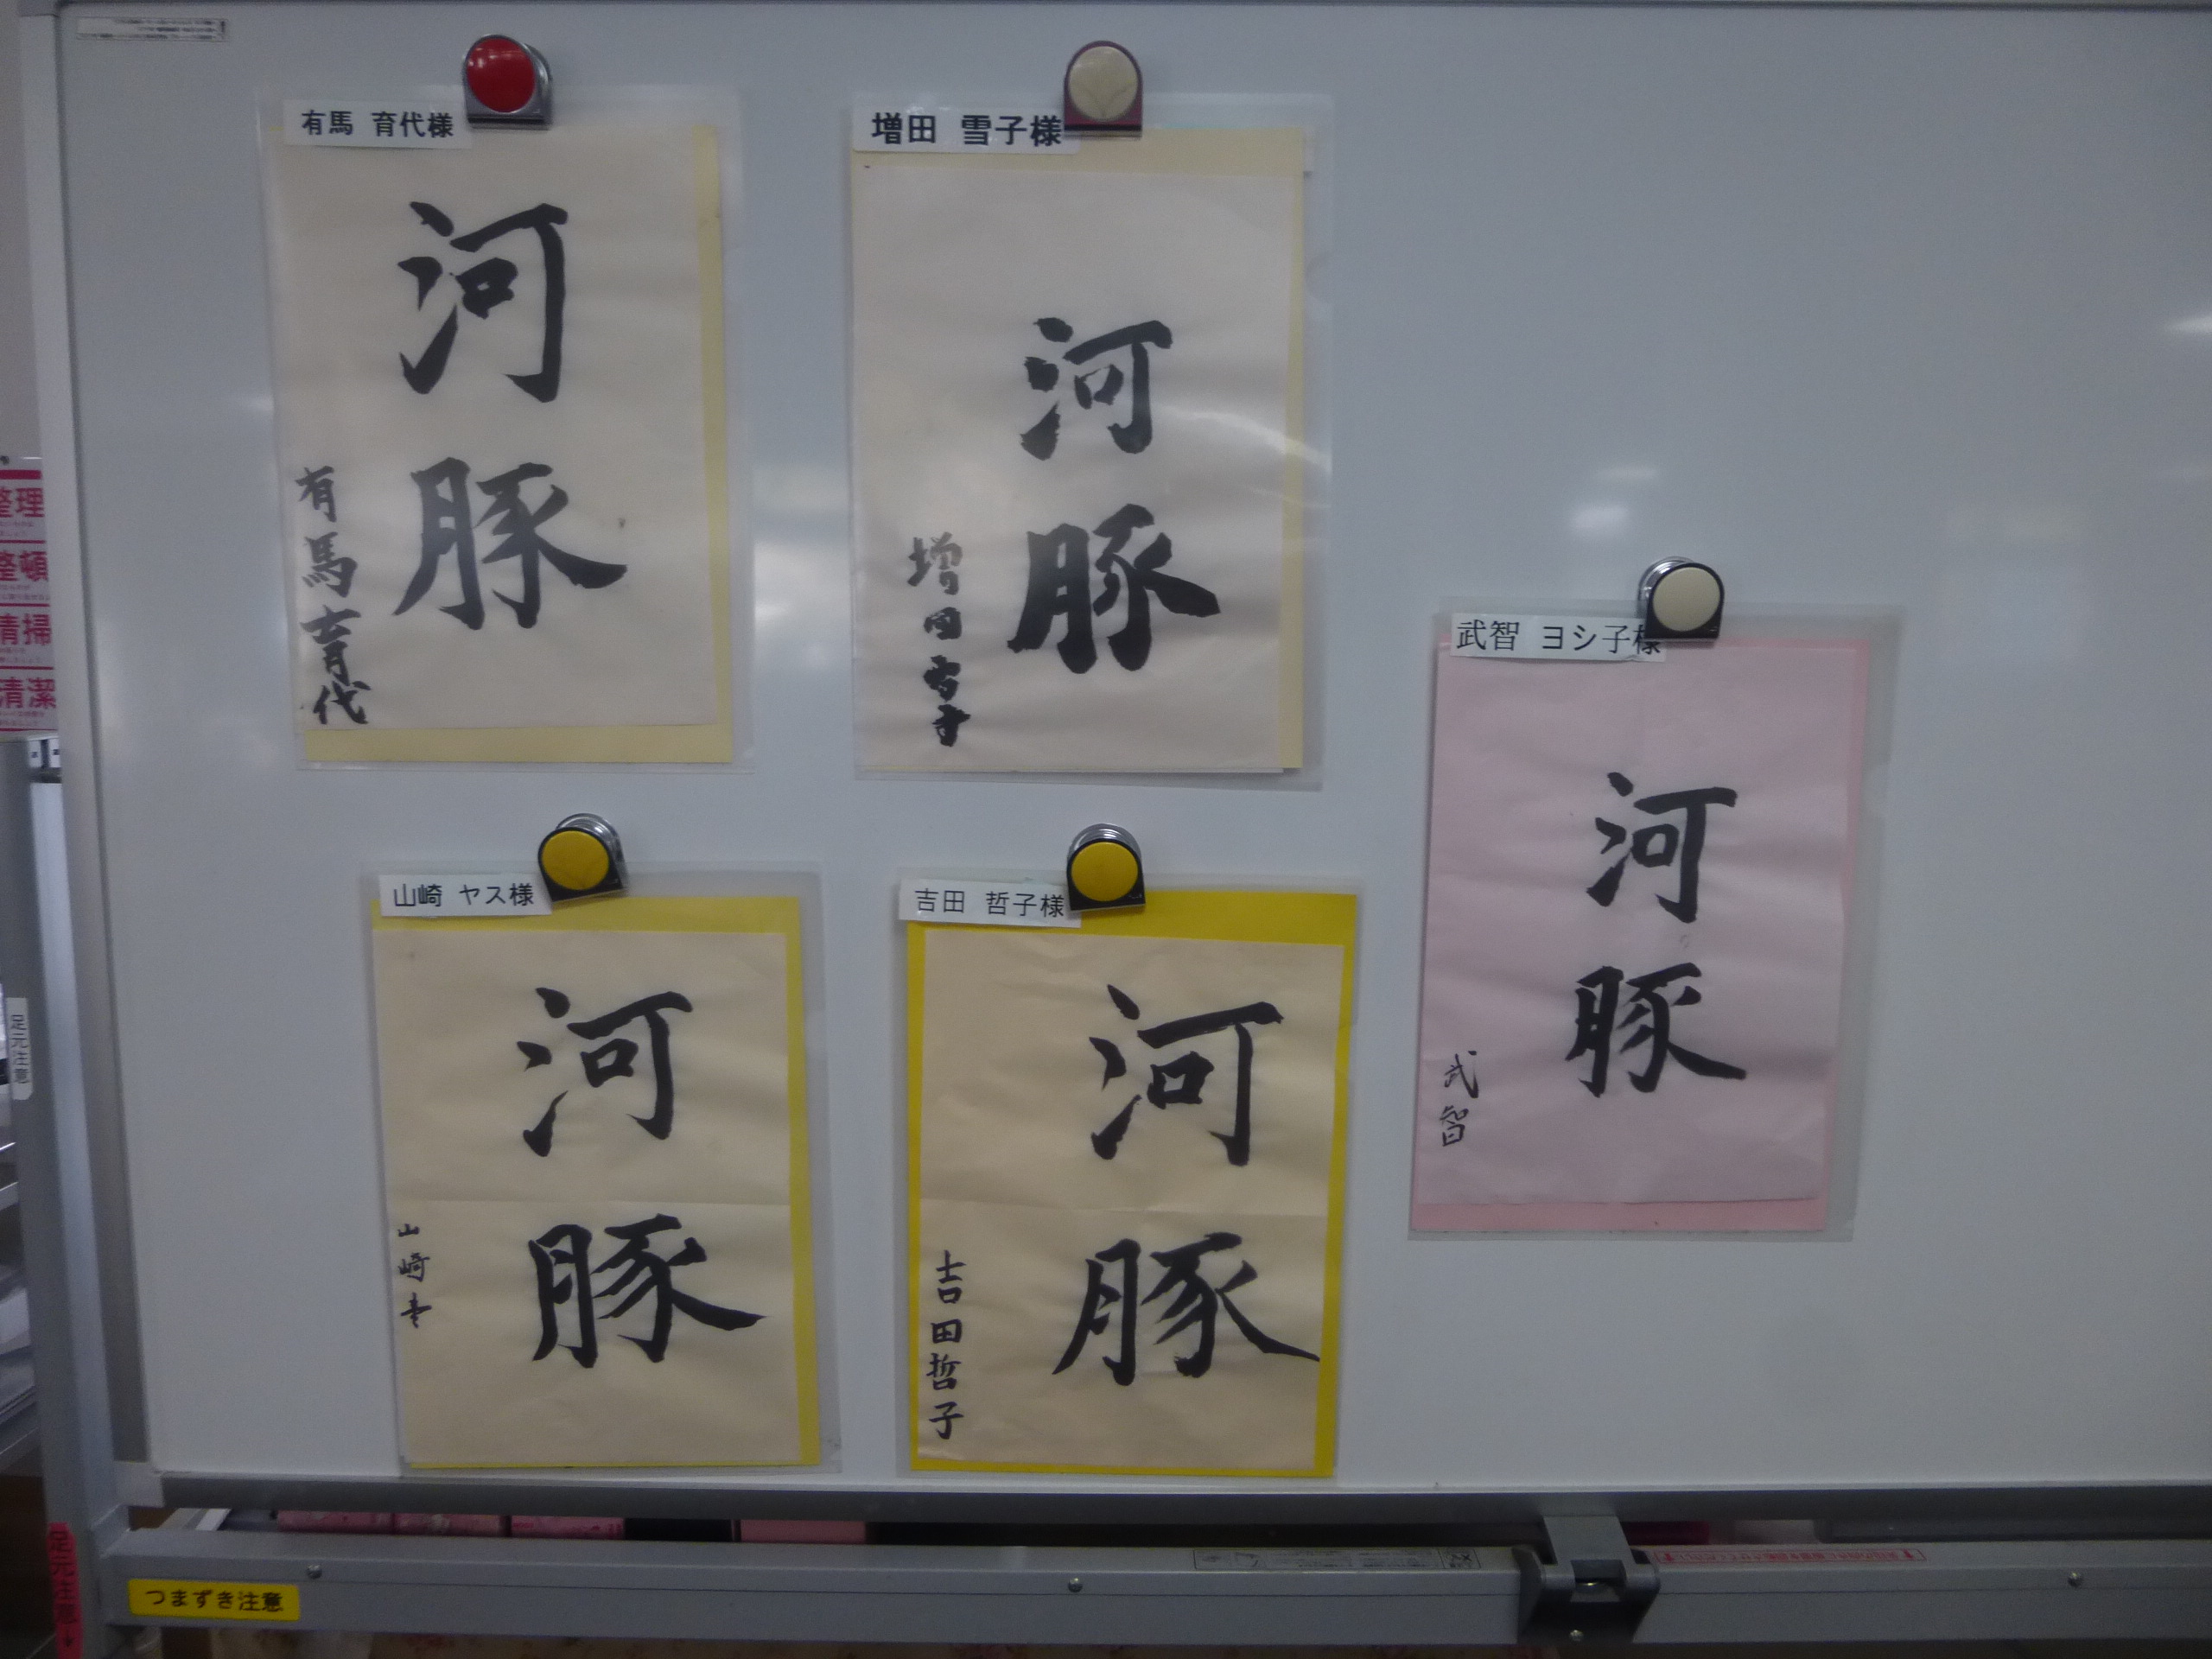 有馬 育代様
河豚
有馬育代
増田 雪子様
河豚
増田雪子
武智 ヨシ子様
河豚
武智
山崎 ヤス様
河豚
山崎
吉田 哲子様
河豚
吉田哲子
整理
整頓
清掃
清潔
足元注意
足元注意
つまずき注意